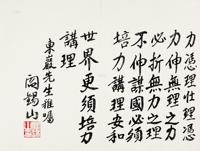 力憑理壯理憑
力伸無理之力
必折無力之理
不伸謀國必須
培力講理安和
世界更須培力
講理
東巖先生雅囑
閻錫山